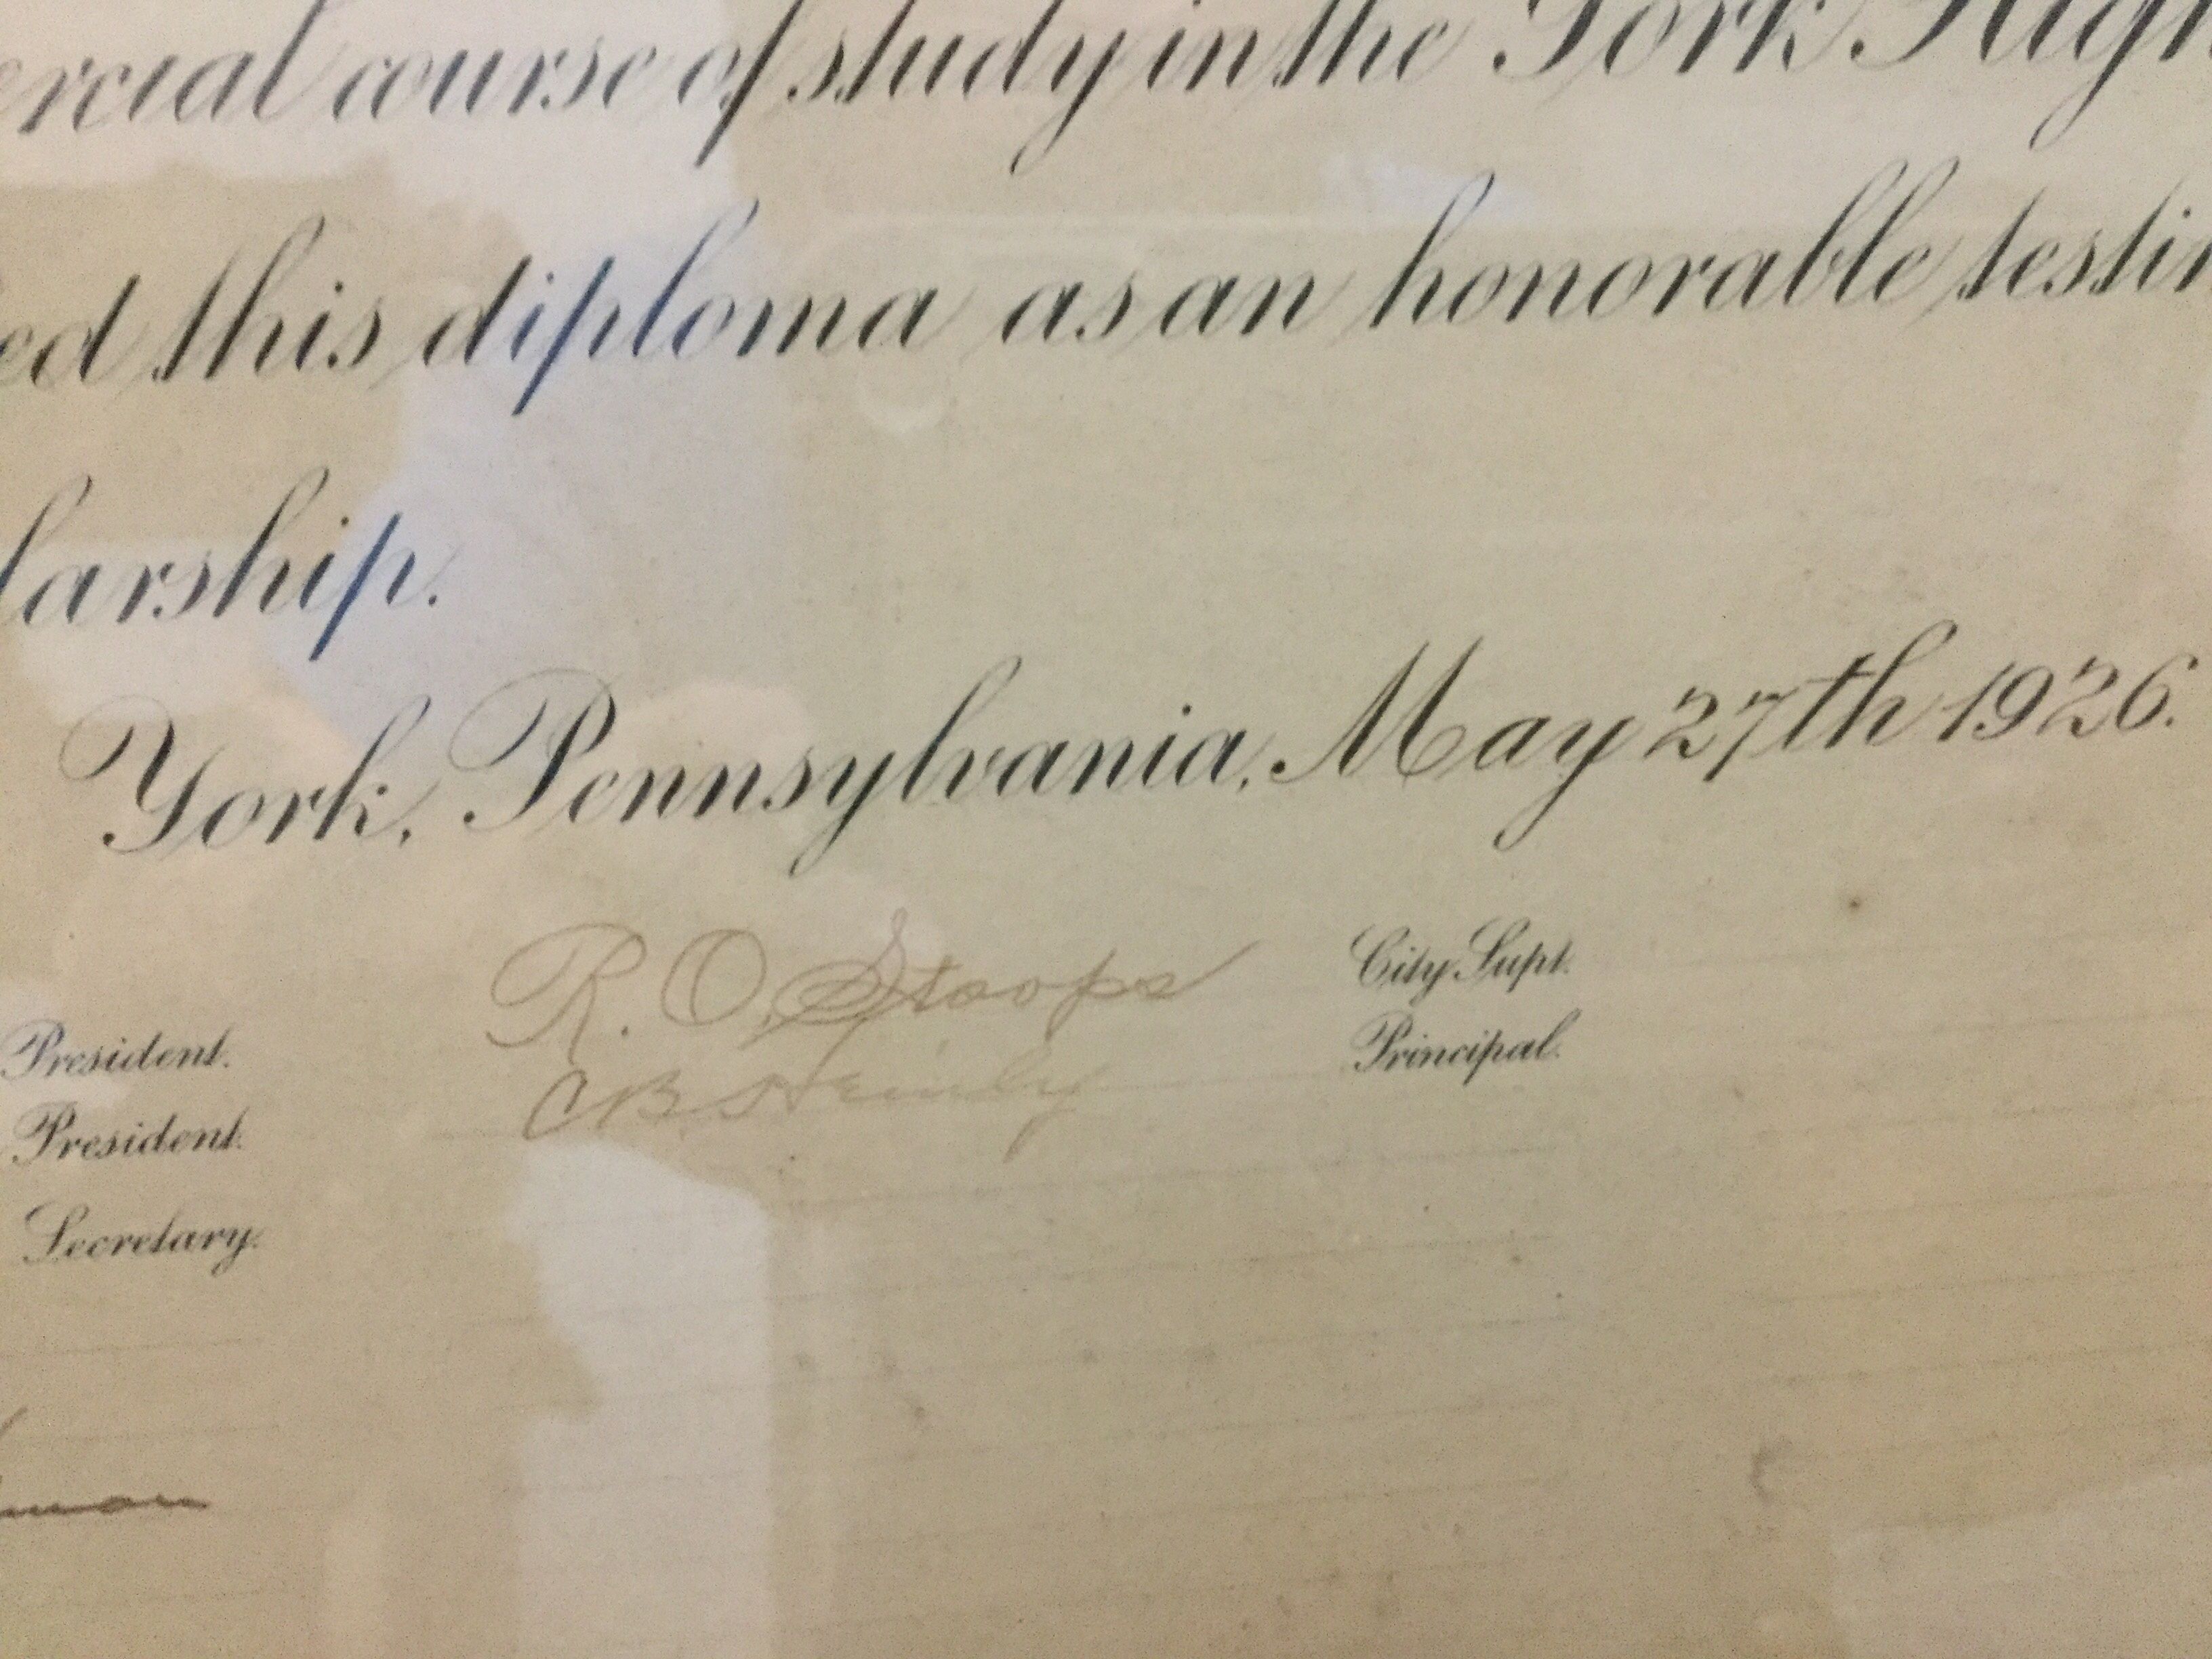 ercial course of study in the York High
ed this diploma as an honorable testim
larship.
York, Pennsylvania, May 27th 1926.
R. O. Stoops City Supt.
President. C B Heinly Principal.
President.
Secretary.
man